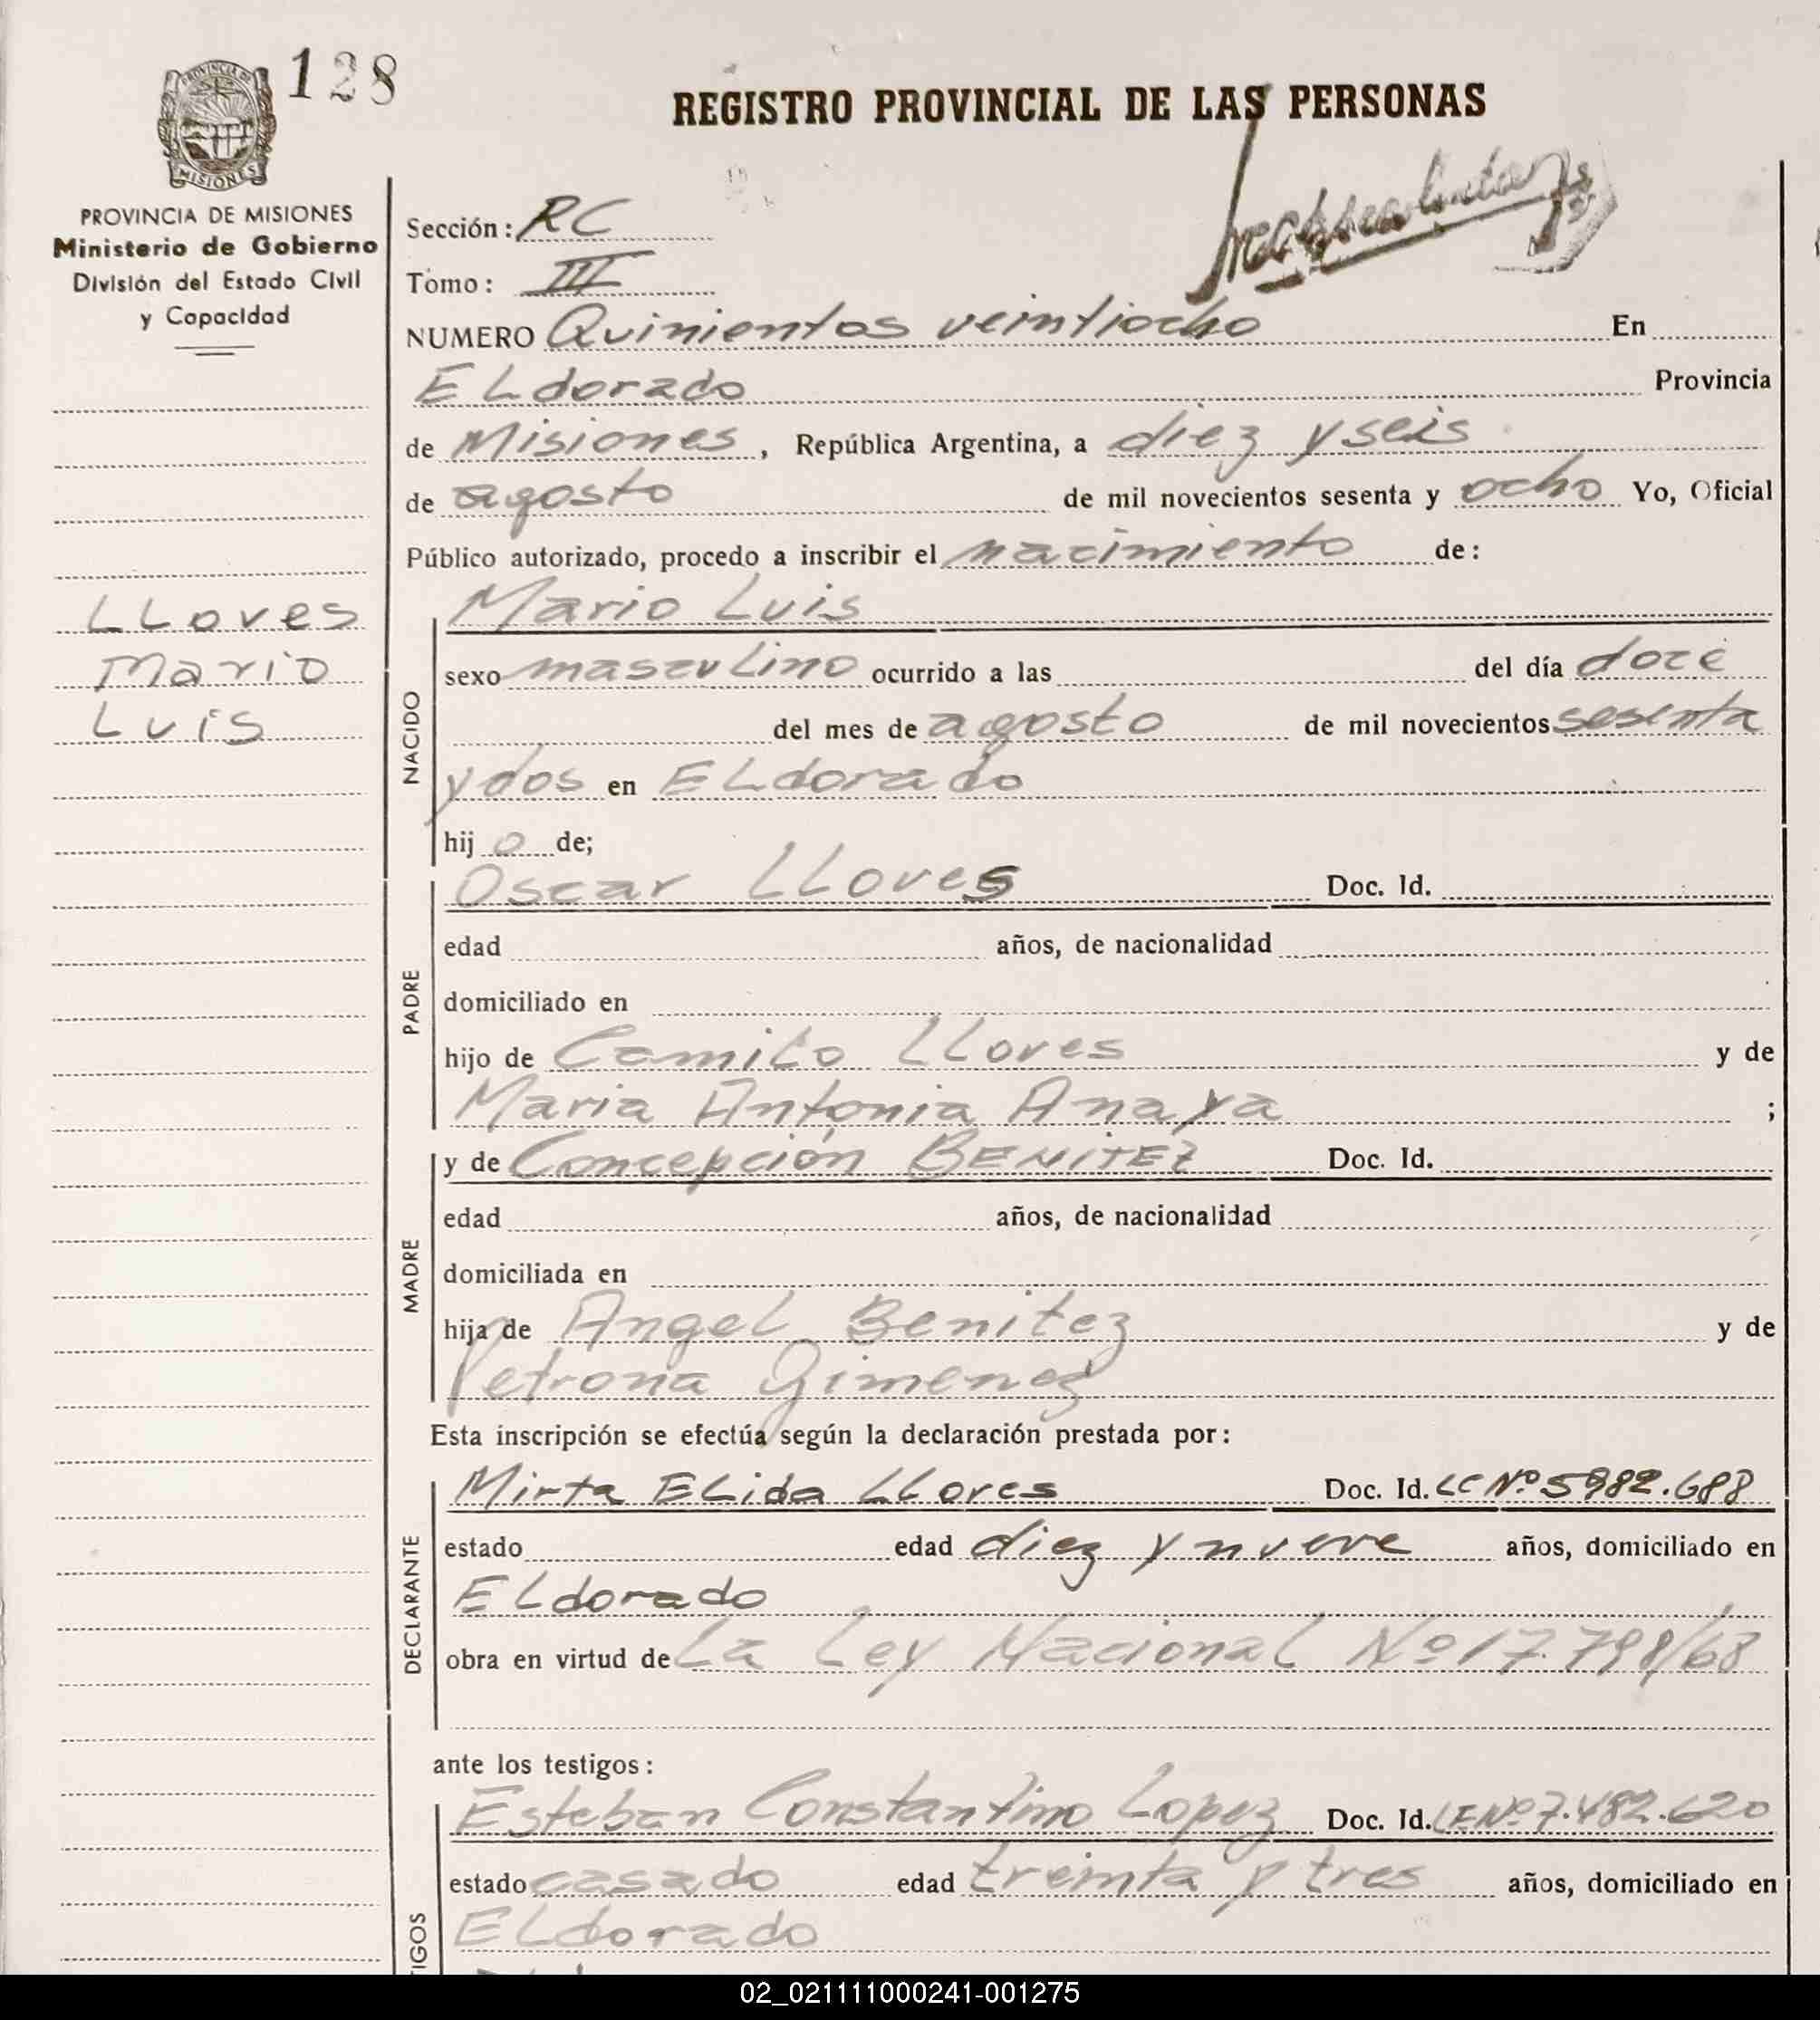 128
PROVINCIA DE
MISIONES
REGISTRO PROVINCIAL DE LAS PERSONAS
PROVINCIA DE MISIONES
Ministerio de Gobierno
División del Estado Civil
y Capacidad
Sección: RC
Tomo: III
NUMERO Quinientos veintiocho En
ELdorado Provincia
de Misiones, República Argentina, a diez y seis
de agosto de mil novecientos sesenta y ocho Yo, Oficial
Público autorizado, procedo a inscribir el nacimiento de:
LLoves
Mario
Luis
NACIDO
Mario Luis
sexo mascuLino ocurrido a las del día doce
del mes de agosto de mil novecientos sesenta
y dos en ELdorado
hijo de;
PADRE
Oscar LLoves Doc. Id.
edad años, de nacionalidad
domiciliado en
hijo de CamiLo LLoves y de
Maria Antonia Anaya ;
MADRE
y de Concepción BENITEZ Doc. Id.
edad años, de nacionalidad
domiciliada en
hija de AngeL Benitez y de
Petrona Gimenez
Esta inscripción se efectúa según la declaración prestada por:
DECLARANTE
Mirta ELida LLoves Doc. Id. LC Nº 5982.688
estado edad diez y nueve años, domiciliado en
ELdorado
obra en virtud de La Ley NacionaL Nº 17.798/68
ante los testigos:
TIGOS
Esteban Constantino Lopez Doc. Id. LE Nº 7.482.620
estado casado edad treinta y tres años, domiciliado en
ELdorado
02_021111000241-001275